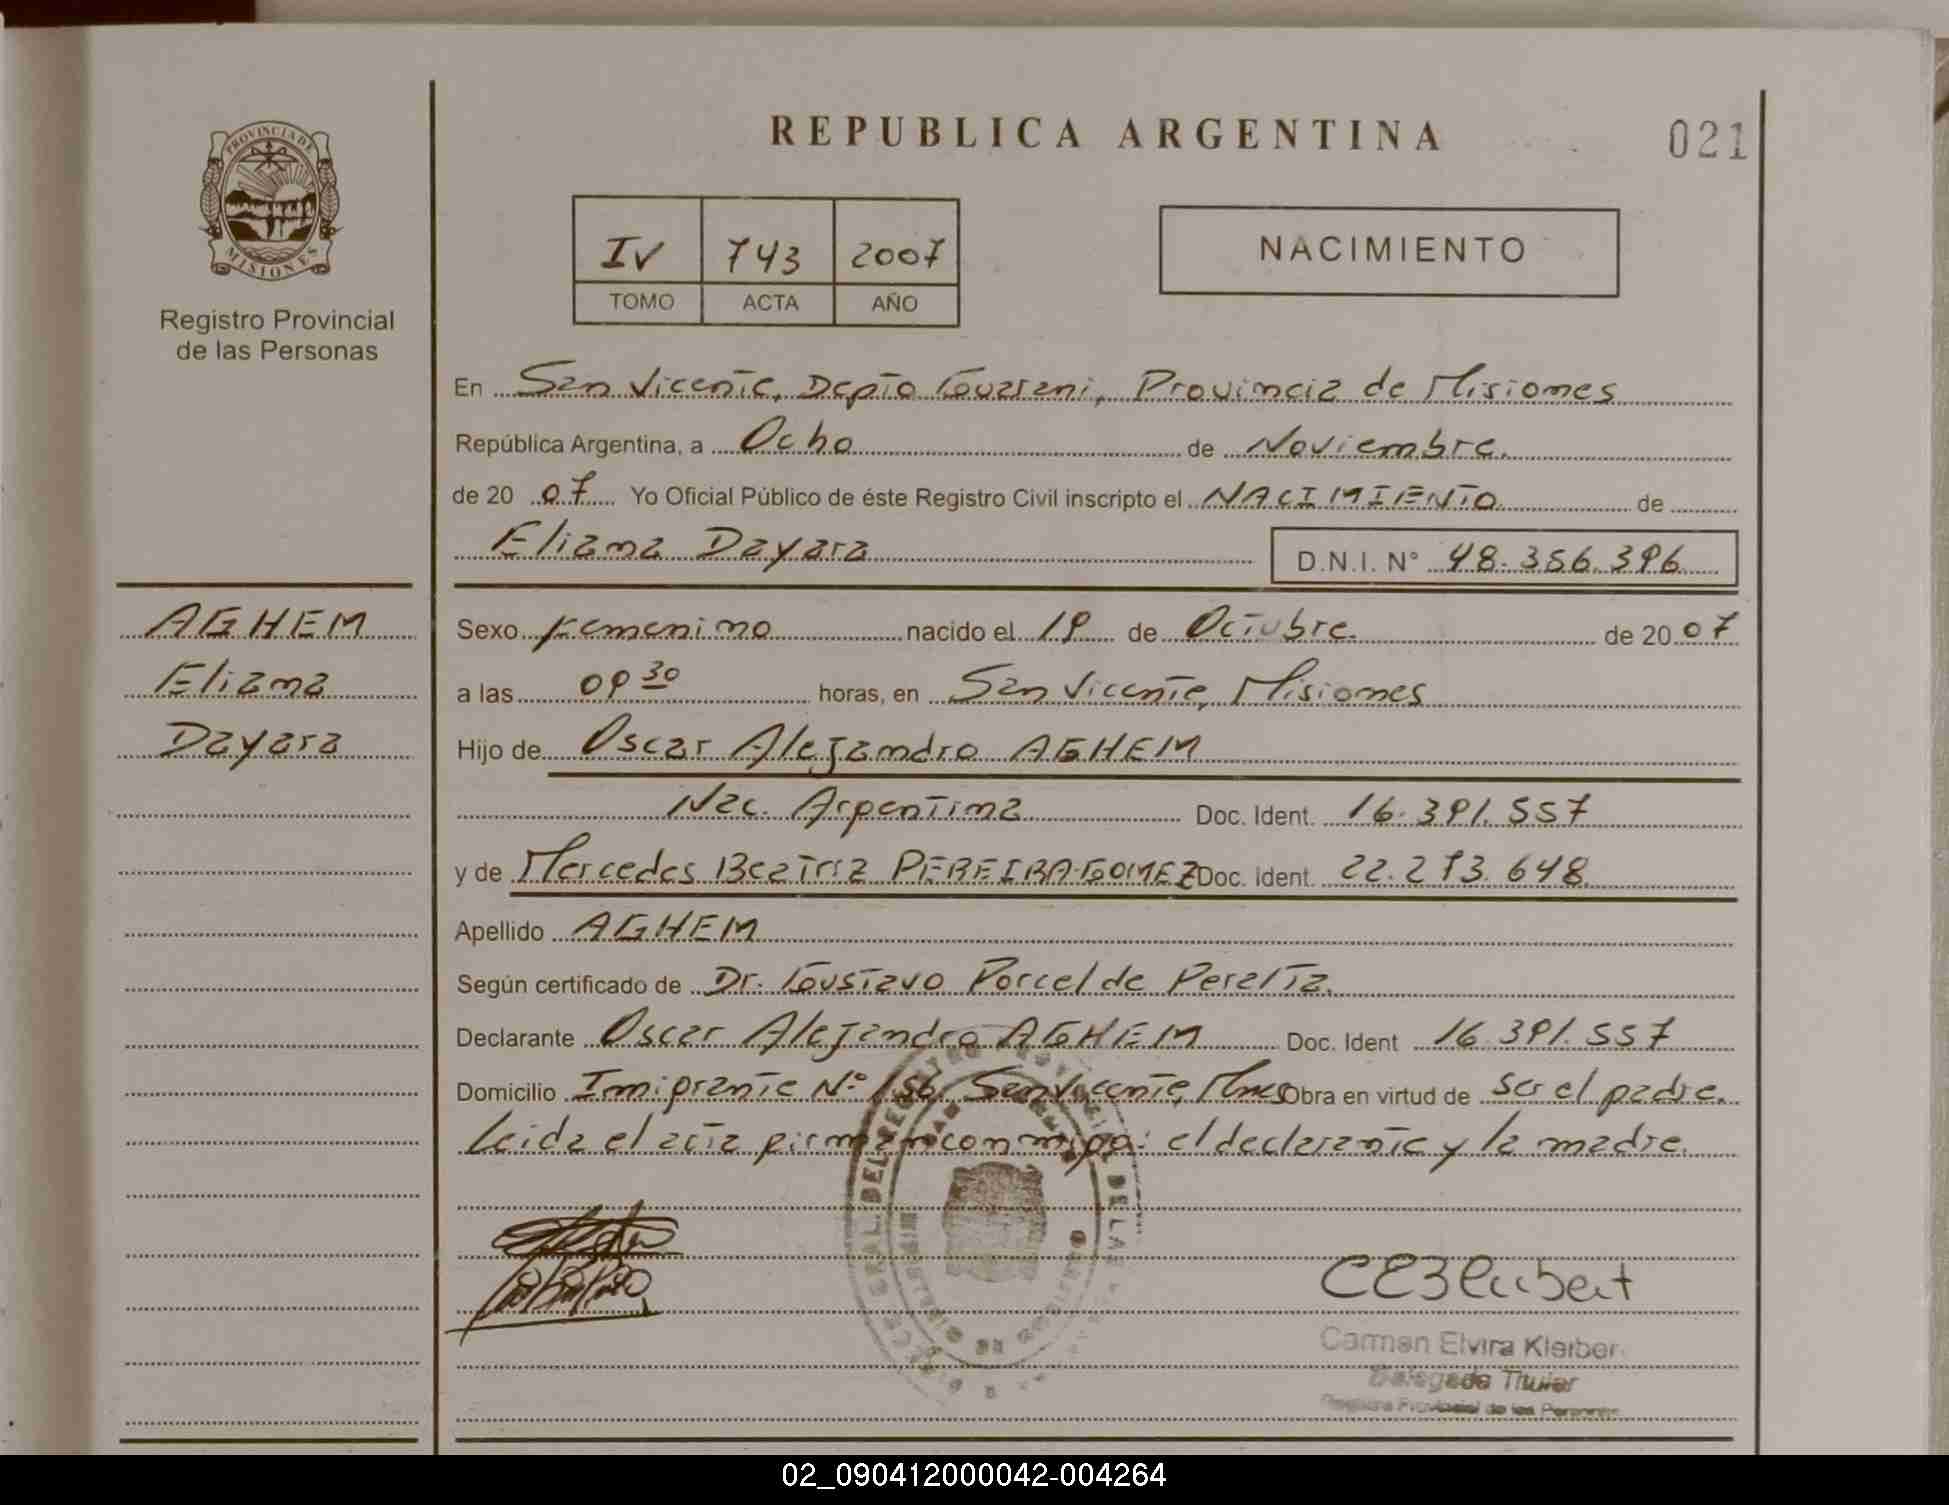 PROVINCIA DE
MISIONES
Registro Provincial
de las Personas
REPUBLICA ARGENTINA
021
IV 743 2007
TOMO ACTA AÑO
NACIMIENTO
En San Vicente, Depto Guarani, Provincia de Misiones
República Argentina, a Ocho de Noviembre.
de 20 07 Yo Oficial Público de éste Registro Civil inscripto el NACIMIENTO de
Eliana Dayara D.N.I. Nº 48.356.396
AGHEM
Eliana
Dayara
Sexo femenino nacido el 19 de Octubre. de 20 07
a las 09 30 horas, en San Vicente, Misiones
Hijo de Oscar Alejandro AGHEM
Nac. Argentina Doc. Ident. 16.391.557
y de Mercedes Beatriz PEREIRA GOMEZ Doc. Ident. 22.273.648
Apellido AGHEM
Según certificado de Dr. Gustavo Porcel de Peralta.
Declarante Oscar Alejandro AGHEM Doc. Ident 16.391.557
Domicilio Inmigrante Nº 156. San Vicente, Mnes Obra en virtud de ser el padre.
Leida el acta firman conmigo: el declarante y la madre.
CEKleibert
Carmen Elvira Kleiber
Delegada Titular
Registro Provincial de las Personas
02_090412000042-004264